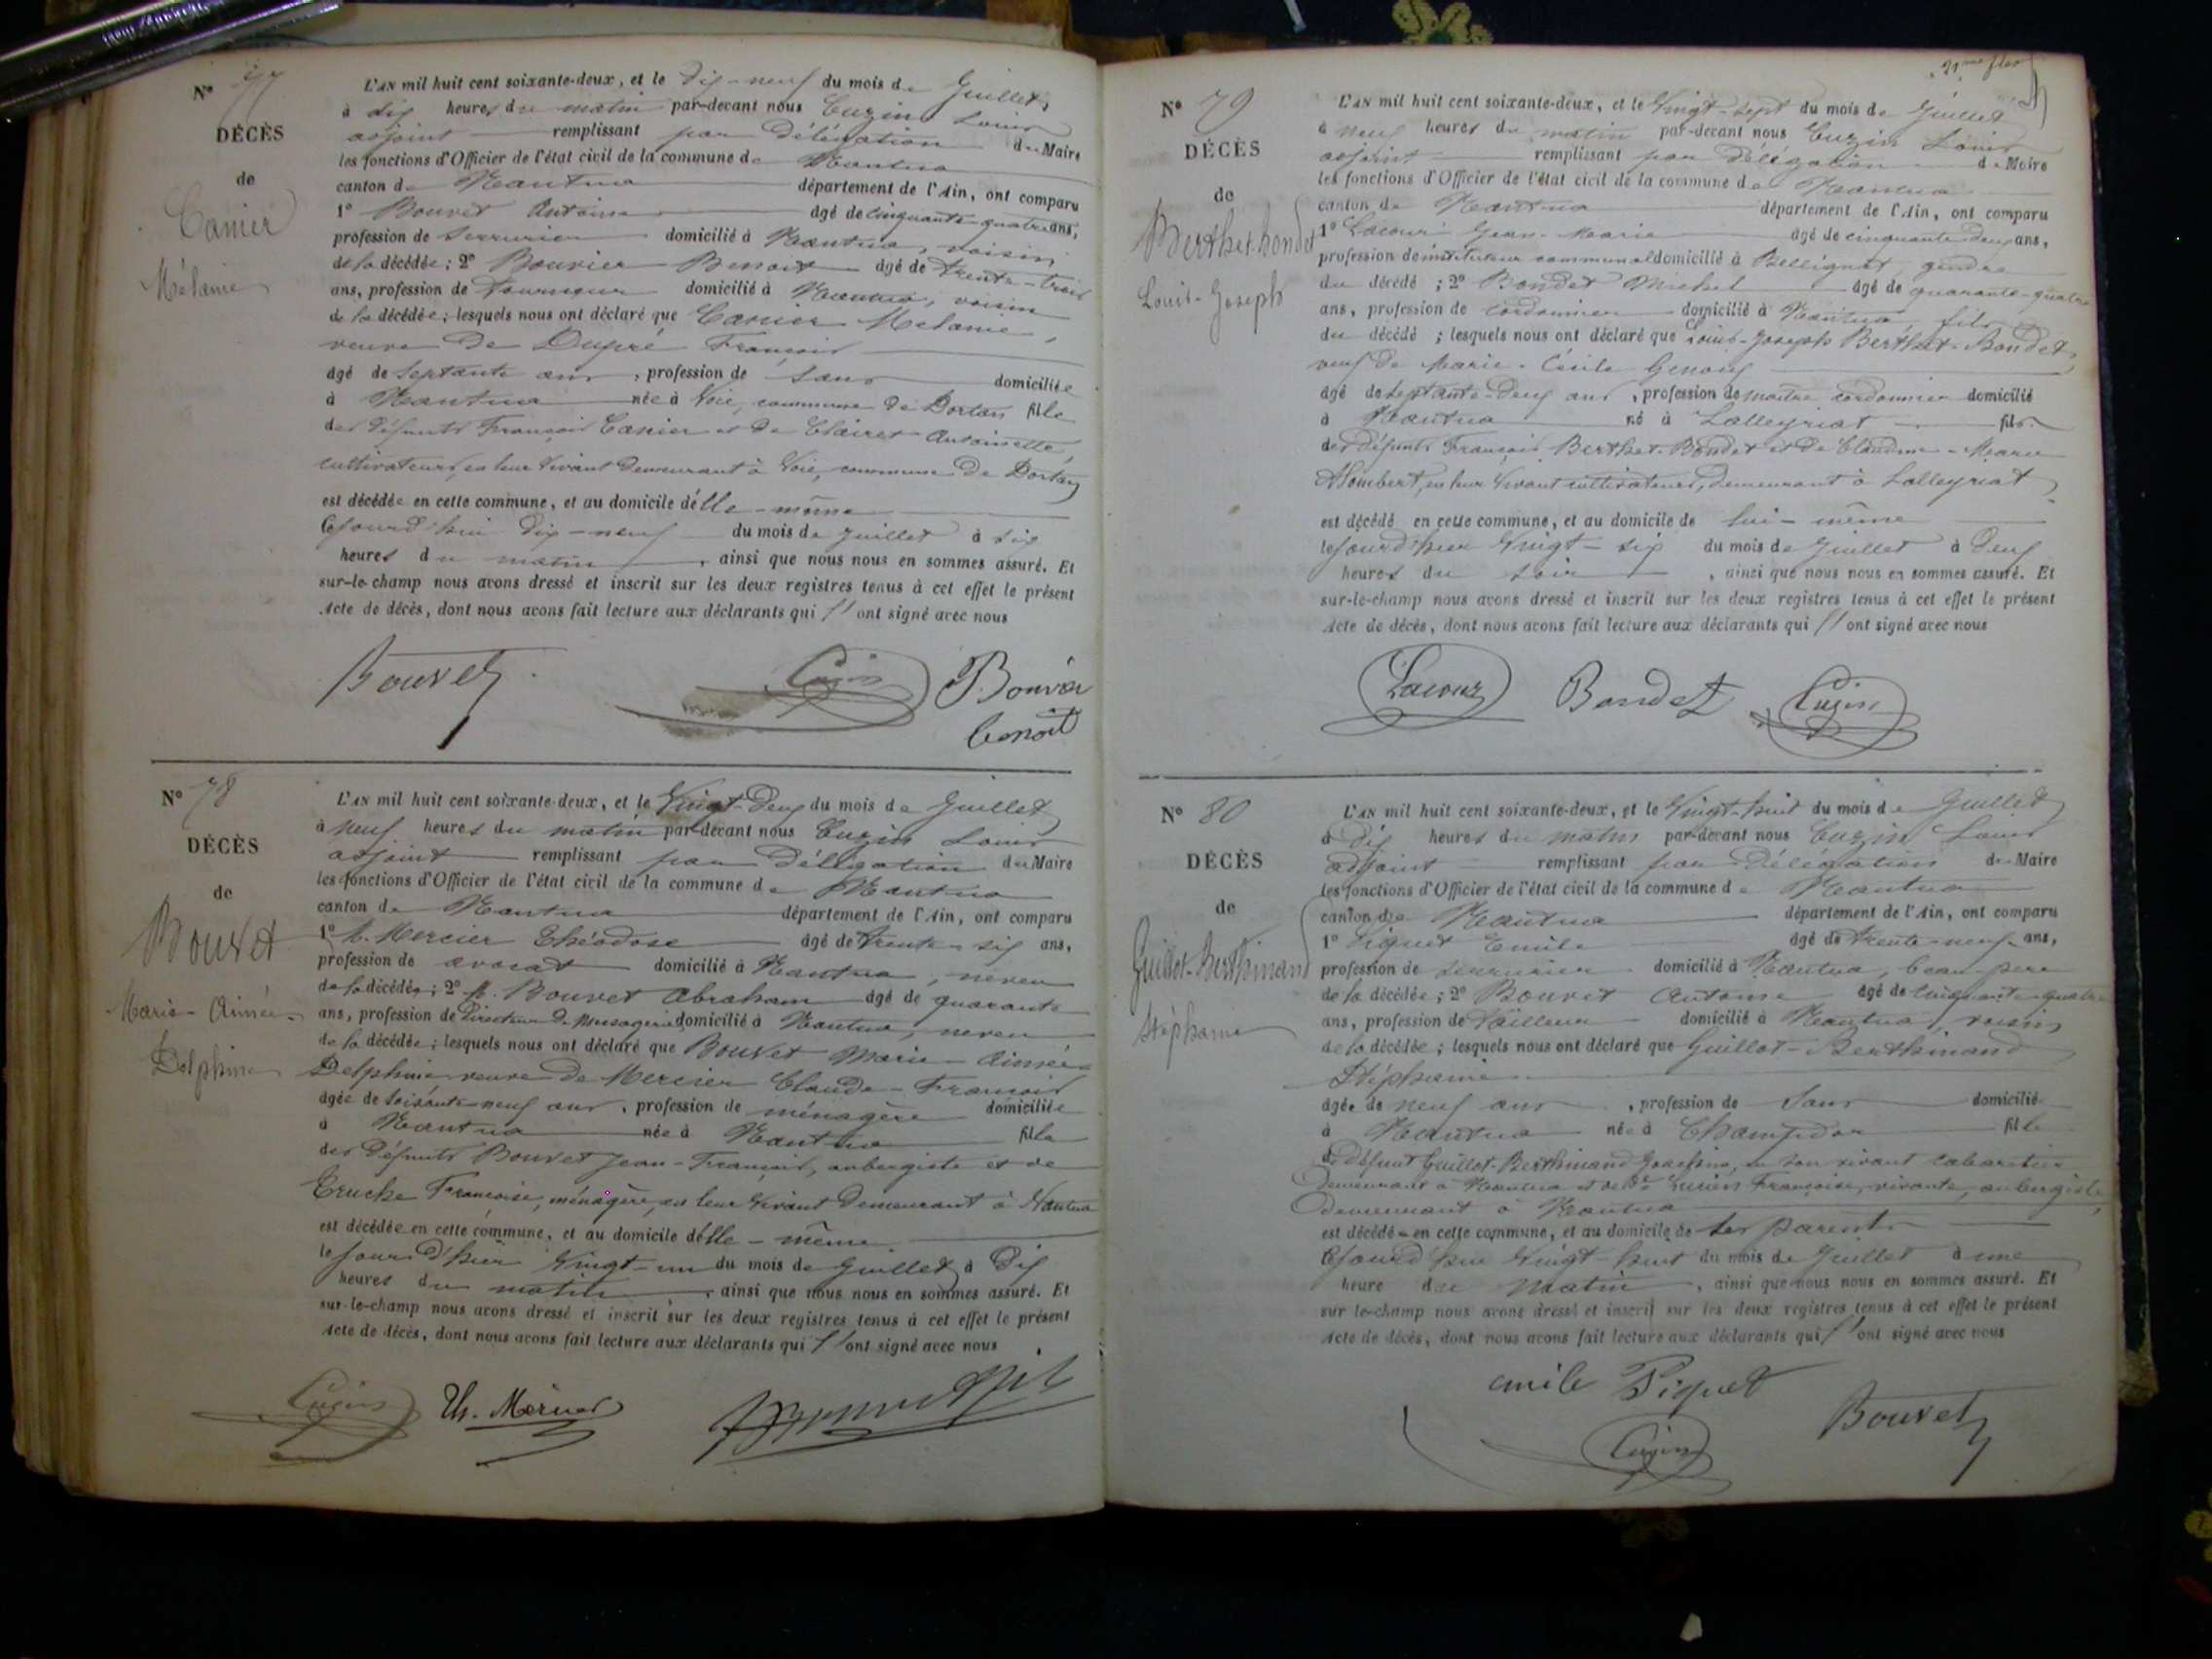 N° 77
DÉCÈS
de
Canier
Mélanie
L'AN mil huit cent soixante-deux, et le dix-neuf du mois de Juillet,
à dix heures du matin par-devant nous Cuzin Louis
adjoint remplissant par délégation du Maire
les fonctions d'Officier de l'état civil de la commune de Nantua
canton de Nantua département de l'Ain, ont comparu
1° Bouvet Antoine âgé de cinquante-quatre ans,
profession de serrurier domicilié à Nantua, voisin
de la décédée; 2° Bouvier Benoit âgé de trente-trois
ans, profession de tourneur domicilié à Nantua, voisin
de la décédée; lesquels nous ont déclaré que Canier Mélanie,
veuve de Dupré François
âgé de septante ans, profession de sans domiciliée
à Nantua née à Voie, commune de Dortan fille
des défunts François Canier et de Clairet Antoinette,
cultivateurs, en leur vivant demeurant à Voie, commune de Dortan
est décédée en cette commune, et au domicile d'elle-même
cejourd'hui dix-neuf du mois de Juillet à six
heures du matin, ainsi que nous nous en sommes assuré. Et
sur-le-champ nous avons dressé et inscrit sur les deux registres tenus à cet effet le présent
Acte de décès, dont nous avons fait lecture aux déclarants qui ont signé avec nous
Bouvet Cuzin Bouvier
benoit
N° 78
DÉCÈS
de
Bouvet
Marie-Aimée-
Delphine
L'AN mil huit cent soixante-deux, et le Vingt-deux du mois de Juillet
à neuf heures du matin par-devant nous Cuzin Louis
adjoint remplissant par délégation du Maire
les fonctions d'Officier de l'état civil de la commune de Nantua
canton de Nantua département de l'Ain, ont comparu
1° M. Mercier Théodose âgé de trente-six ans,
profession de avocat domicilié à Nantua, neveu
de la décédée; 2° M. Bouvet Abraham âgé de quarante
ans, profession de Directeur de Messagerie domicilié à Nantua, neveu
de la décédée; lesquels nous ont déclaré que Bouvet Marie-Aimée-
Delphine veuve de Mercier Claude-François
âgée de soixante-neuf ans, profession de ménagère domiciliée
à Nantua née à Nantua fille
des défunts Bouvet Jean-François, aubergiste et de
Truche Françoise, ménagère, en leur vivant demeurant à Nantua
est décédée en cette commune, et au domicile d'elle-même
le jour d'hier Vingt-un du mois de Juillet à dix
heures du matin, ainsi que nous nous en sommes assuré. Et
sur-le-champ nous avons dressé et inscrit sur les deux registres tenus à cet effet le présent
Acte de décès, dont nous avons fait lecture aux déclarants qui ont signé avec nous
Cuzin Th. Mercier
N° 79
DÉCÈS
de
Berthet-bondet
Louis-Joseph
L'AN mil huit cent soixante-deux, et le Vingt-sept du mois de Juillet
à neuf heures du matin par-devant nous Cuzin Louis
adjoint remplissant par délégation du Maire
les fonctions d'Officier de l'état civil de la commune de Nantua
canton de Nantua département de l'Ain, ont comparu
1° Lacour Jean-Marie âgé de cinquante-deux ans,
profession de instituteur communal domicilié à Bellignat, gendre
du décédé; 2° Bondet Michel âgé de quarante-quatre
ans, profession de cordonnier domicilié à Nantua, fils
du décédé; lesquels nous ont déclaré que Louis-Joseph Berthet-Bondet,
veuf de Marie-Cécile Genoux
âgé de septante-deux ans, profession de maître cordonnier domicilié
à Nantua né à Lalleyriat fils
des défunts François Berthet-Bondet et de Claudine-Marie
Alombert, en leur vivant cultivateurs, demeurant à Lalleyriat
est décédé en cette commune, et au domicile de lui-même
le jour d'hier Vingt-six du mois de Juillet à deux
heures du soir, ainsi que nous nous en sommes assuré. Et
sur-le-champ nous avons dressé et inscrit sur les deux registres tenus à cet effet le présent
Acte de décès, dont nous avons fait lecture aux déclarants qui ont signé avec nous
Lacour Bondet Cuzin
N° 80
DÉCÈS
de
Guillot-Berthinand
Stéphanie
L'AN mil huit cent soixante-deux, et le Vingt-huit du mois de Juillet
à dix heures du matin par-devant nous Cuzin Louis
adjoint remplissant par délégation du Maire
les fonctions d'Officier de l'état civil de la commune de Nantua
canton de Nantua département de l'Ain, ont comparu
1° Piquet Emile âgé de trente-neuf ans,
profession de serrurier domicilié à Nantua, beau-père
de la décédée; 2° Bouvet Antoine âgé de cinquante-quatre
ans, profession de tailleur domicilié à Nantua, voisin
de la décédée; lesquels nous ont déclaré que Guillot-Berthinand
Stéphanie
âgée de neuf ans, profession de Sans domiciliée
à Nantua née à Champdor fille
de défunt Guillot-Berthinand Josephine, en son vivant cabaretier
demeurant à Nantua et de Françoise, vivante, aubergiste,
demeurant à Nantua
est décédée en cette commune, et au domicile de ses parents
cejourd'hui Vingt-huit du mois de Juillet à une
heure du matin, ainsi que nous nous en sommes assuré. Et
sur-le-champ nous avons dressé et inscrit sur les deux registres tenus à cet effet le présent
Acte de décès, dont nous avons fait lecture aux déclarants qui ont signé avec nous
emile Piquet
Bouvet
Cuzin